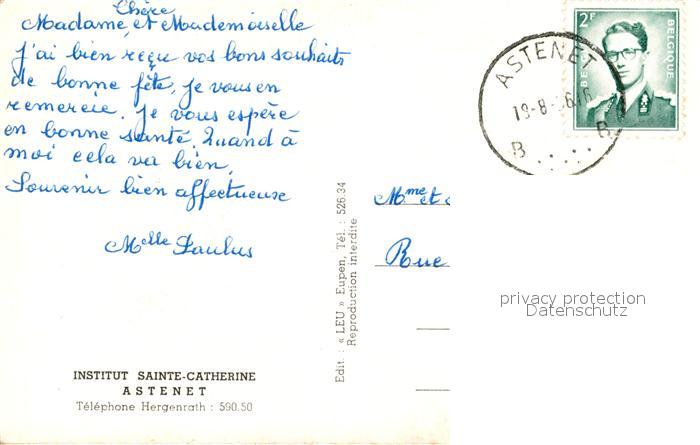 Chère
Madame, et Mademoiselle
J'ai bien reçu vos bons souhaits
de bonne fête, je vous en
remercie. Je vous espère
en bonne santé. Quand à
moi cela va bien.
Souvenir bien affectueuse
Melle Paulus
INSTITUT SAINTE-CATHERINE
ASTENET
Téléphone Hergenrath : 590.50
Edit. : « LEU » Eupen, Tél. : 526.34
Reproduction interdite
2F
BELGIQUE
ASTENET
B B
Mme et
Rue
privacy protection
Datenschutz